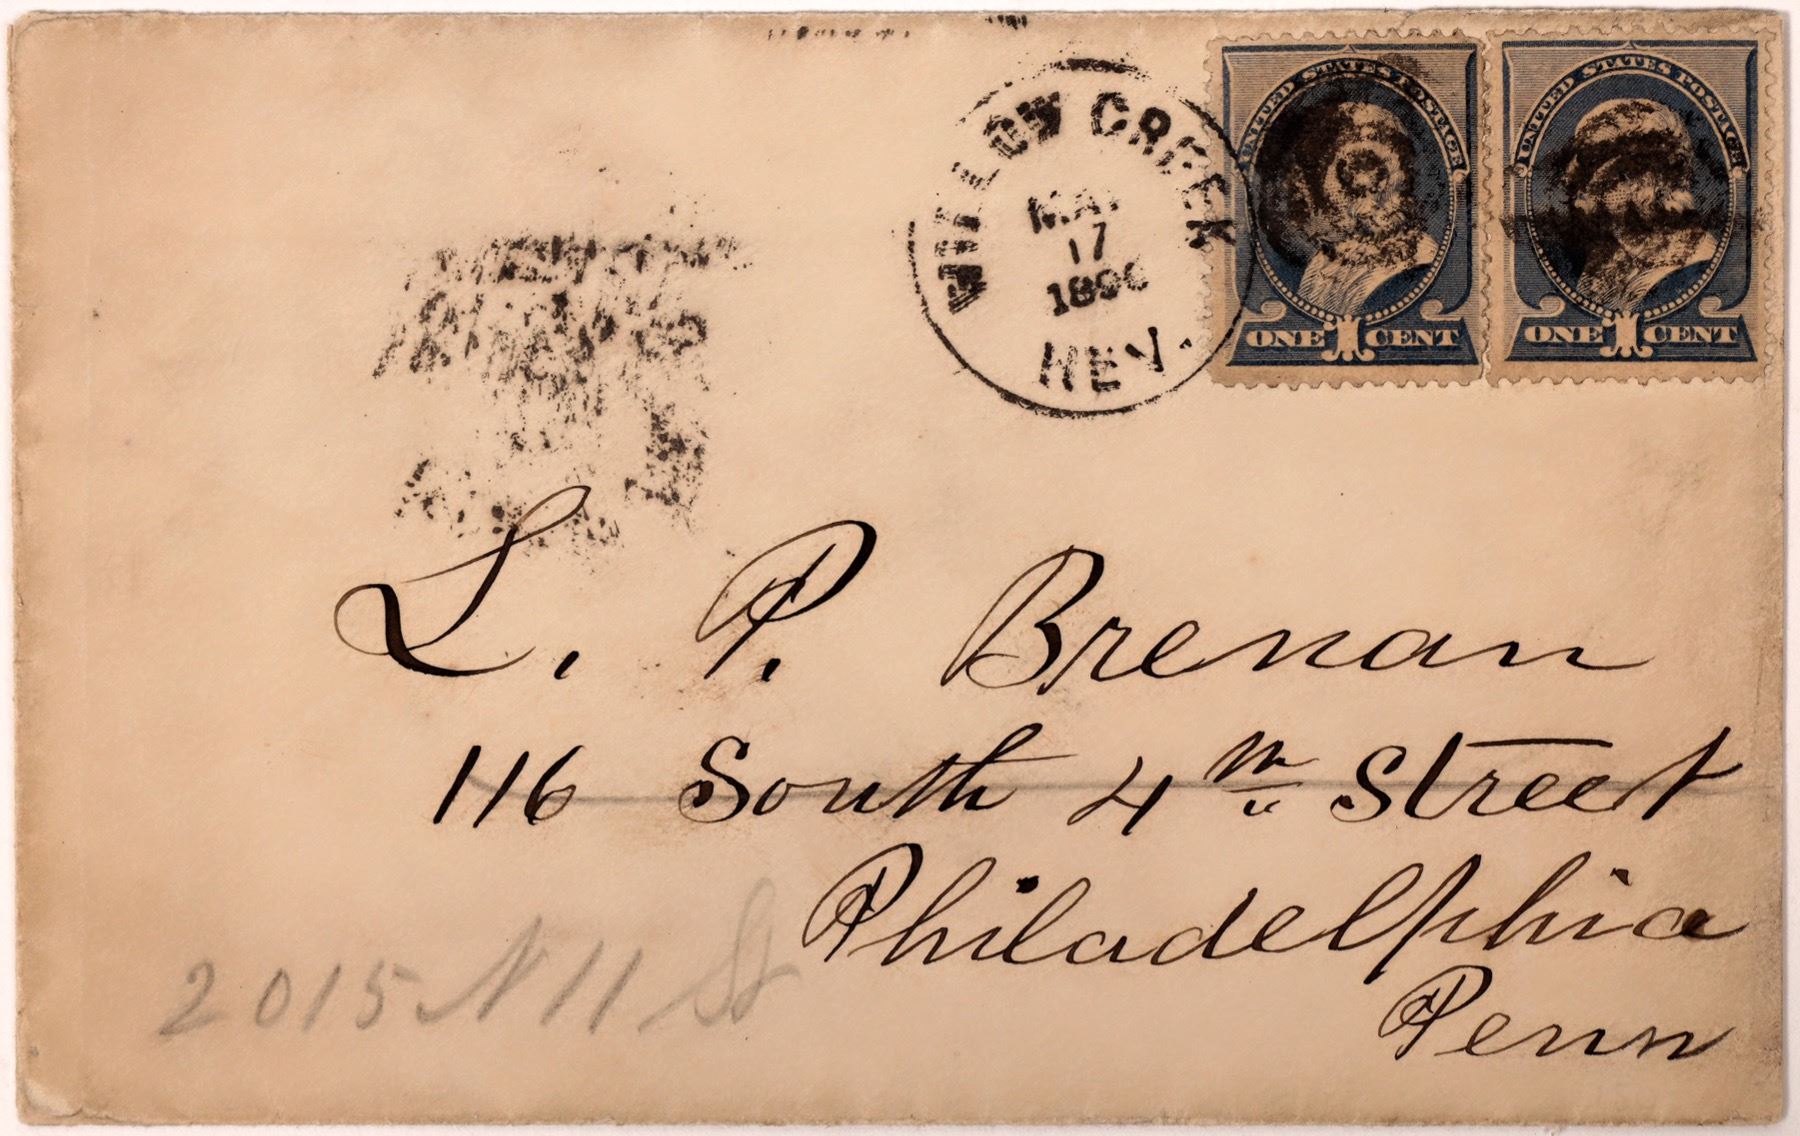 WILLOW CREEK
17
NEV.
UNITED STATES POSTAGE
ONE 1 CENT
UNITED STATES POSTAGE
ONE 1 CENT
L. P. Brenan
116 South 4th Street
Philadelphia
Penn
2015 N 11 St